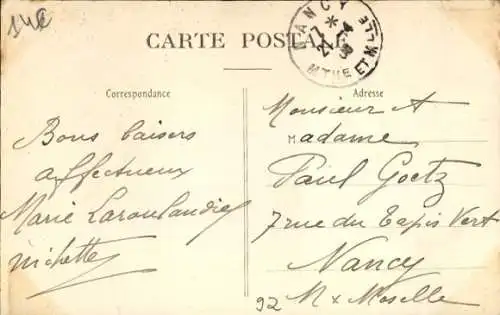 CARTE POSTALE
NANCY
MTHE ET MLLE
Correspondance
Adresse
Bons baisers
affectueux
Marie
Michette
Monsieur &
Madame
Paul Goetz
7 rue du Tapis Vert
Nancy
92
M & Moselle